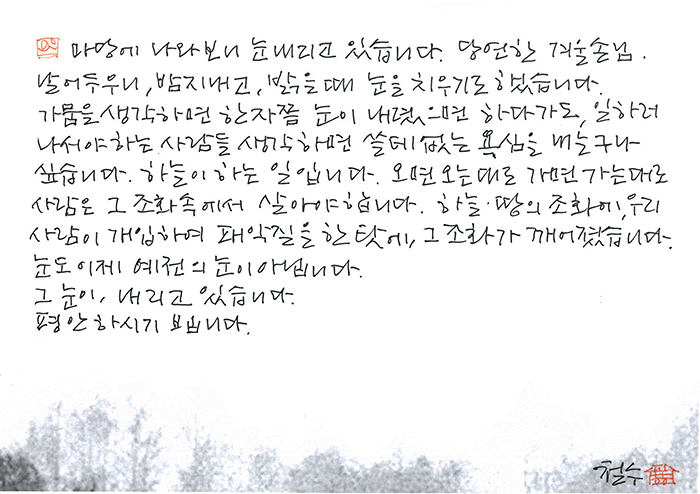 마당에 나와보니 눈내리고 있습니다. 당연한 겨울손님.
날어두우니, 밤지내고, 밝을때 눈을 치우기로 했습니다.
가뭄을 생각하면 한자쯤 눈이 내렸으면 하다가도, 일하러
나서야하는 사람들 생각하면 쓸데없는 욕심을 내는구나
싶습니다. 하늘이 하는 일입니다. 오면 오는대로 가면 가는대로
사람은 그 조화속에서 살아야합니다. 하늘·땅의 조화에, 우리
사람이 개입하여 패악질을 한 탓에, 그 조화가 깨어졌습니다.
눈도 이제 예전의 눈이 아닙니다.
그 눈이, 내리고 있습니다.
평안하시기 빕니다.
철수